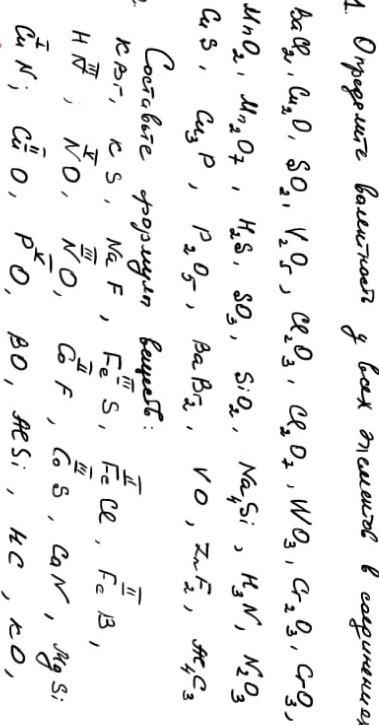 1. Определите валентность у всех элементов в соединениях
BaCl₂, Cu₂O, SO₂, V₂O₅, Cl₂O₃, Cl₂O₇, WO₃, Cr₂O₃, CrO₃,
MnO₂, Mn₂O₇, H₂S, SO₃, SiO₂, Na₄Si, H₃N, N₂O₃
CuS, Cu₃P, P₂O₅, BaBr₂, VO, ZnF₂, Al₄C₃
Составьте формулы веществ:
KBr, KS, NaF, Fe(III)S, Fe(II)Cl, Fe(II)B,
HN(III), N(V)O, N(III)O, Co(II)F, Co(III)S, CaN, MgSi
Cu(I)N; Cu(II)O, P(V)O, BO, AlSi, HC, KO,